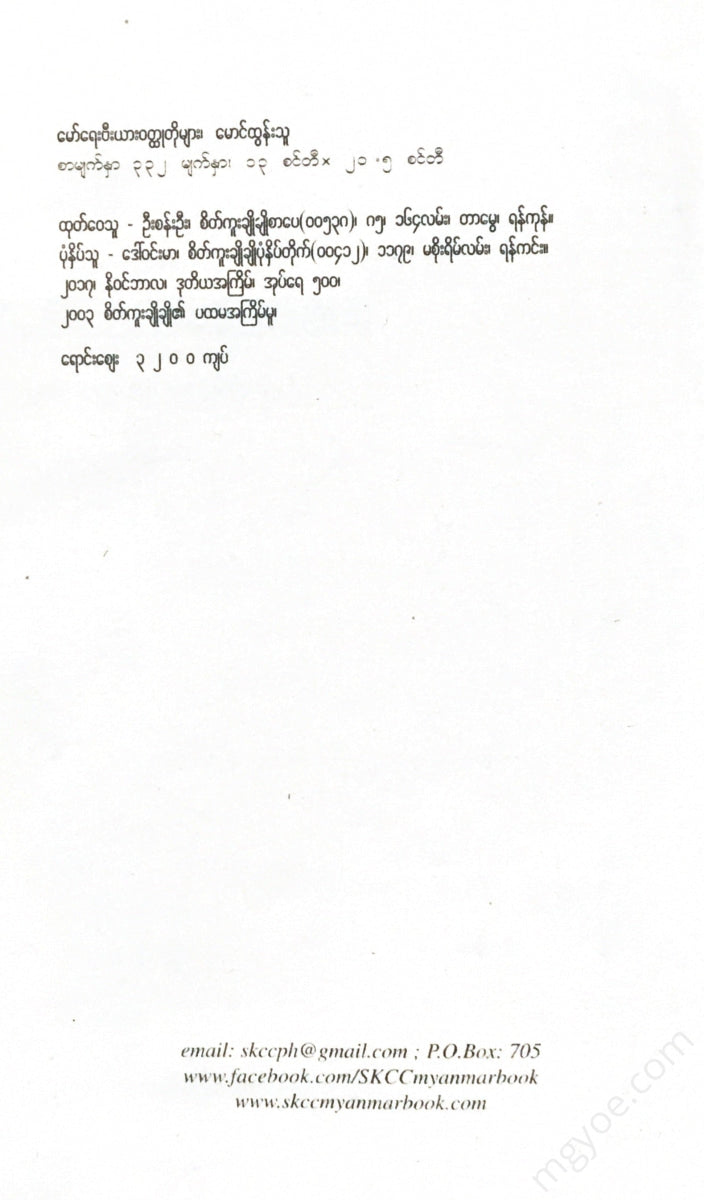 မော်ရေးဗီးယားဝတ္ထုတိုများ၊ မောင်ထွန်းသူ
စာမျက်နှာ ၃၃၂ မျက်နှာ၊ ၁၃ စင်တီ× ၂၁ .၅ စင်တီ
ထုတ်ဝေသူ - ဦးစန်းဦး၊ စိတ်ကူးချိုချိုစာပေ(၀၀၅၃၈)၊ ဂ၅၊ ၁၆၄လမ်း၊ တာမွေ၊ ရန်ကုန်။
ပုံနှိပ်သူ - ဒေါ်ဝင်းမာ၊ စိတ်ကူးချိုချိုပုံနှိပ်တိုက်(၀၀၄၁၂)၊ ၁၁၇၉၊ မစိုးရိမ်လမ်း၊ ရန်ကင်း။
၂၀၁၇၊ နိုဝင်ဘာလ၊ ဒုတိယအကြိမ်၊ အုပ်ရေ ၅၀၀၊
၂၀၀၃ စိတ်ကူးချိုချို၏ ပထမအကြိမ်မူ၊
ရောင်းစျေး ၃ ၂ ၀ ၀ ကျပ်
email: skccph@gmail.com ; P.O.Box: 705
www.facebook.com/SKCCmyanmarbook
www.skccmyanmarbook.com
mgyoe.com